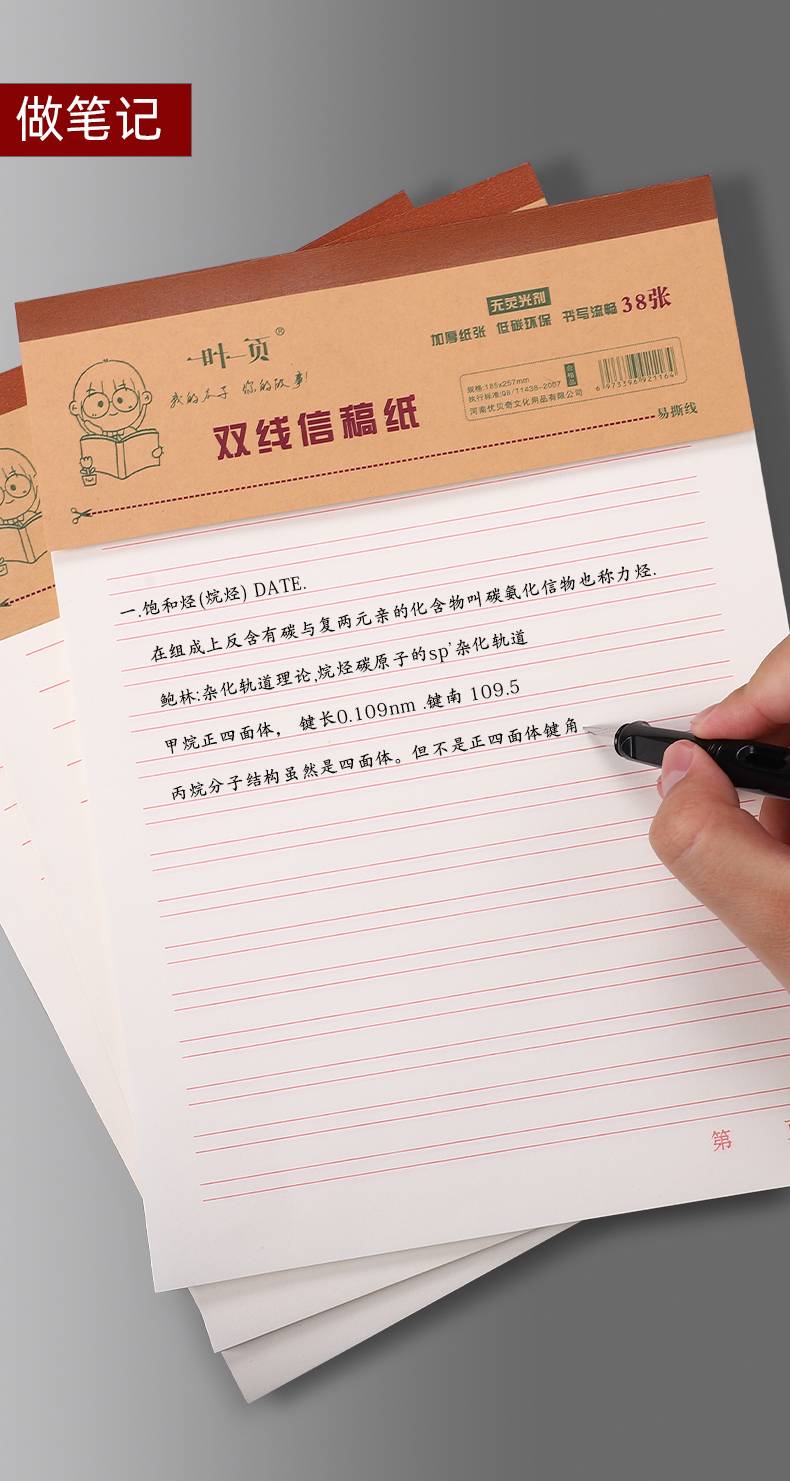 做笔记
一叶一页®
我的本子 你的故事!
双线信稿纸
无荧光剂
加厚纸张 低碳环保 书写流畅 38张
规格:185x257mm
执行标准:QB/T1438-2007
河南优贝奇文化用品有限公司
合格品
6 973396 921164
易撕线
一.饱和烃(烷烃) DATE.
在组成上反含有碳与复两元亲的化含物叫碳氨化信物也称力烃.
鲍林:杂化轨道理论,烷烃碳原子的sp'杂化轨道
甲烷正四面体， 键长0.109nm .键南 109.5
丙烷分子结构虽然是四面体。但不是正四面体键角
第